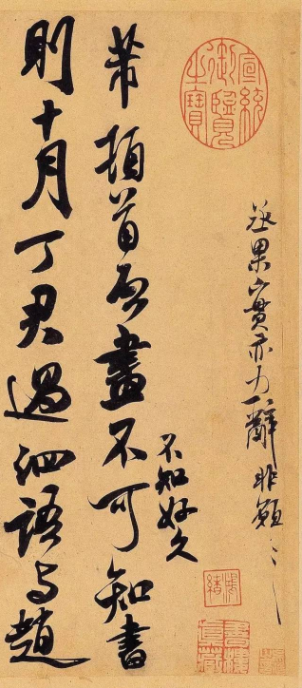 宣統御覽之寶
果實亦力辭非願
芾頓首啟畫不可知書
不知好久
則十月丁君過泗語与趙